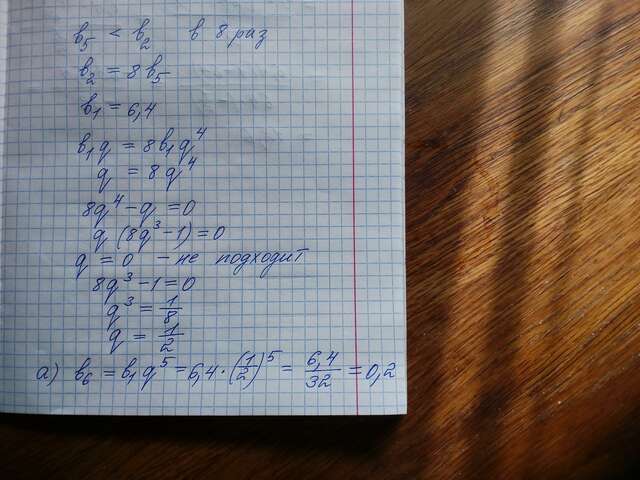 b₅ < b₂ в 8 раз
b₂ = 8b₅
b₁ = 6,4
b₁q = 8b₁q⁴
q = 8q⁴
8q⁴ - q = 0
q (8q³ - 1) = 0
q = 0 - не подходит
8q³ - 1 = 0
q³ = 1/8
q = 1/2
а) b₆ = b₁q⁵ = 6,4 · (1/2)⁵ = 6,4/32 = 0,2